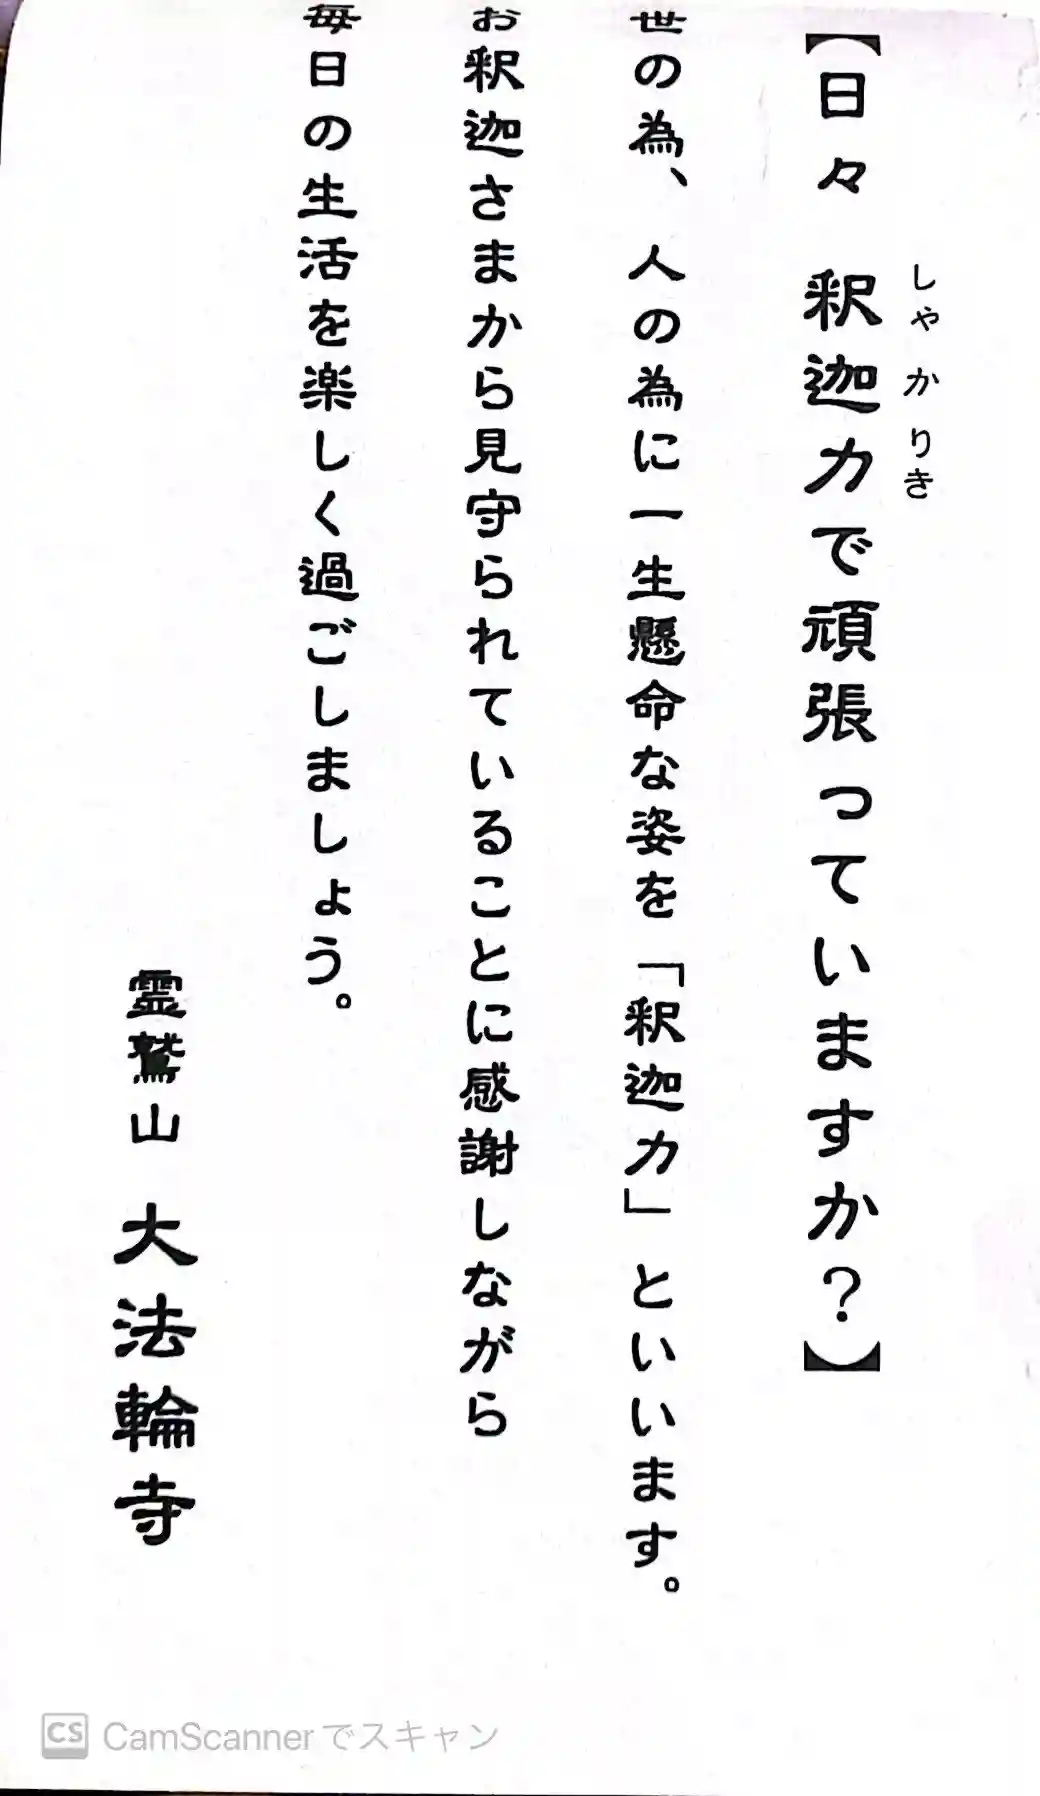 【日々 釈迦力で頑張っていますか？】
しゃかりき
世の為、人の為に一生懸命な姿を「釈迦力」といいます。
お釈迦さまから見守られていることに感謝しながら
毎日の生活を楽しく過ごしましょう。
霊鷲山 大法輪寺
CS CamScannerでスキャン